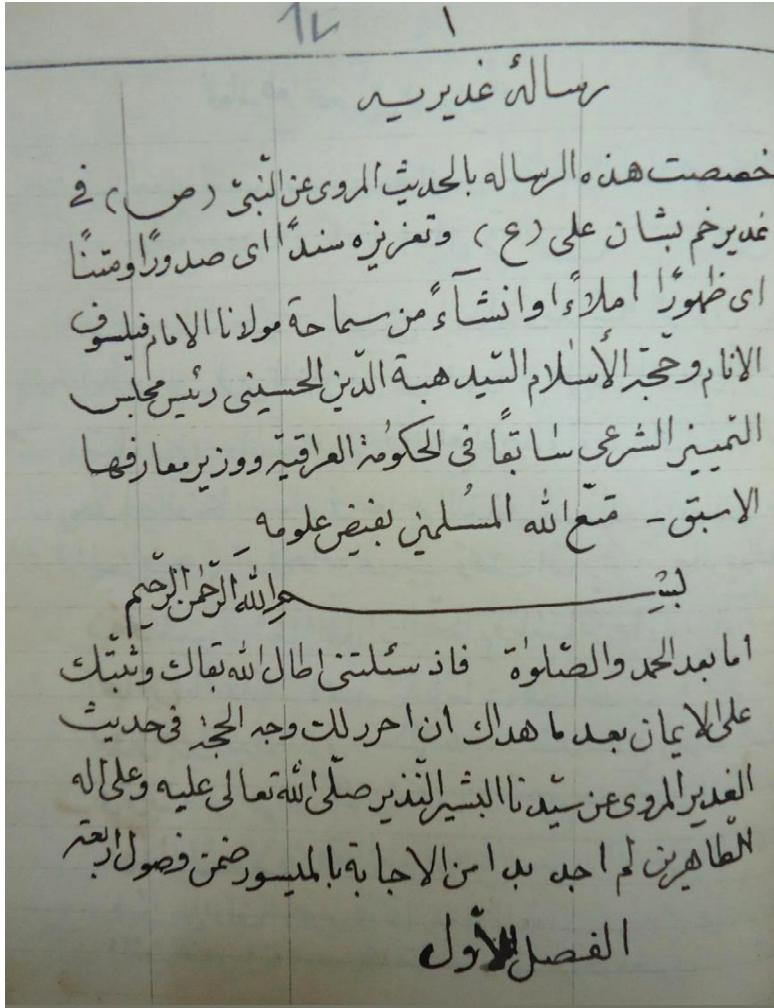 ١ ١٧
رسالهٔ غدیریه
خصصت هذه الرساله بالحدیث المروی عن النّبیّ (ص) فی
غدیر خم بشان علی (ع) وتعزیزه سنداً ای صدورًا ومتنًا
ای ظهورًا املاءً وانشآءً من سماحة مولانا الامام فیلسوف
الانام وحجّة الأسلام السّید هبة الدّین الحسینی رئیس مجلس
التمییز الشرعی سابقاً فی الحکومة العراقیّة ووزیر معارفها
الاسبق - متّع الله المسُلمین بفیض علومه
بسم الله الرّحمن الرّحیم
اما بعد الحمد والصّلوٰة فاذ سئلتنی اطال الله بقاک وثبّتک
علی الایمان بعد ما هداک ان احرر لک وجه الحجة فی حدیث
الغدیر المروی عن سیّدنا البشیر النّذیر صلّی الله تعالی علیه وعلی اله
الطّاهرین لم اجد بدا من الاجابة بالمیسور ضمن فصول اربعة
الفصل الاوّل